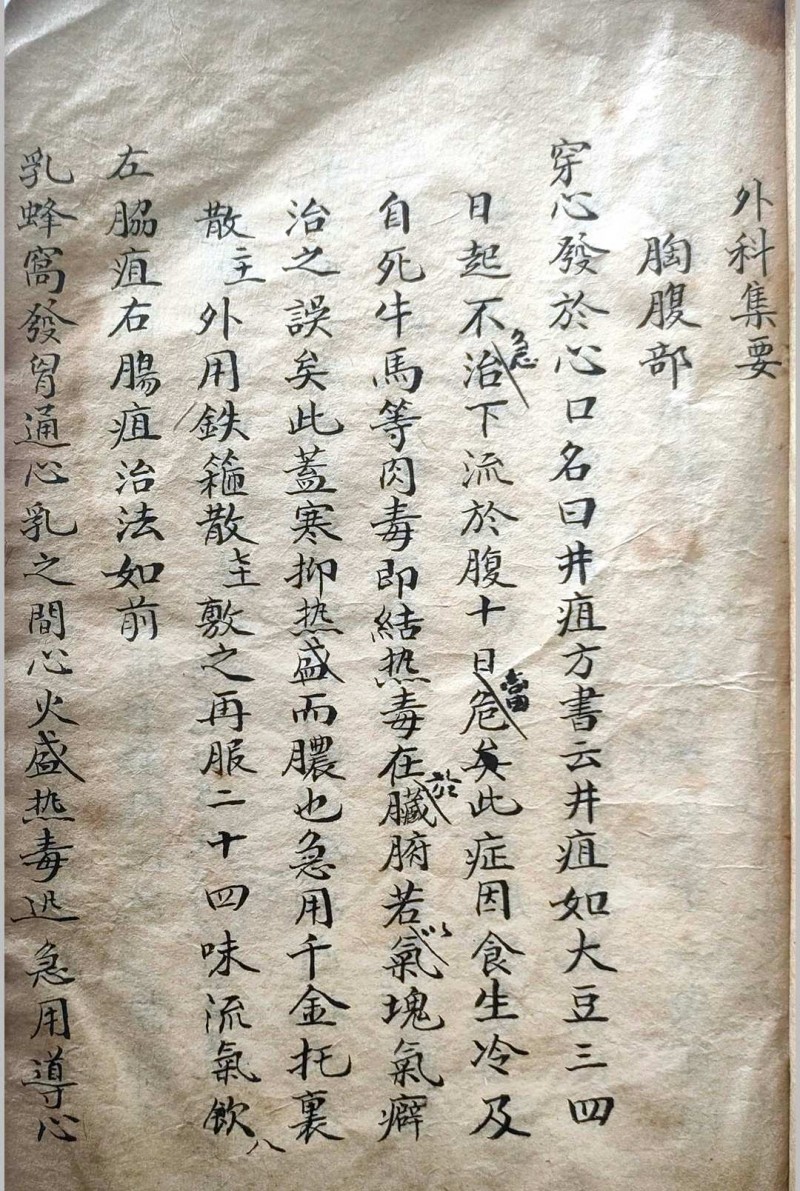 外科集要
胸腹部
穿心發於心口名曰井疽方書云井疽如大豆三四
日起不急治下流於腹十日當危矣此症因食生冷及
自死牛馬等肉毒即結热毒在於臟腑若以氣塊氣癖
治之誤矣此蓋寒抑热盛而膿也急用千金托裏
散二主外用鉄箍散七主敷之再服二十四味流氣飲八
左脇疽右腸疽治法如前
乳蜂窩發胷通心乳之間心火盛热毒迅急用導心